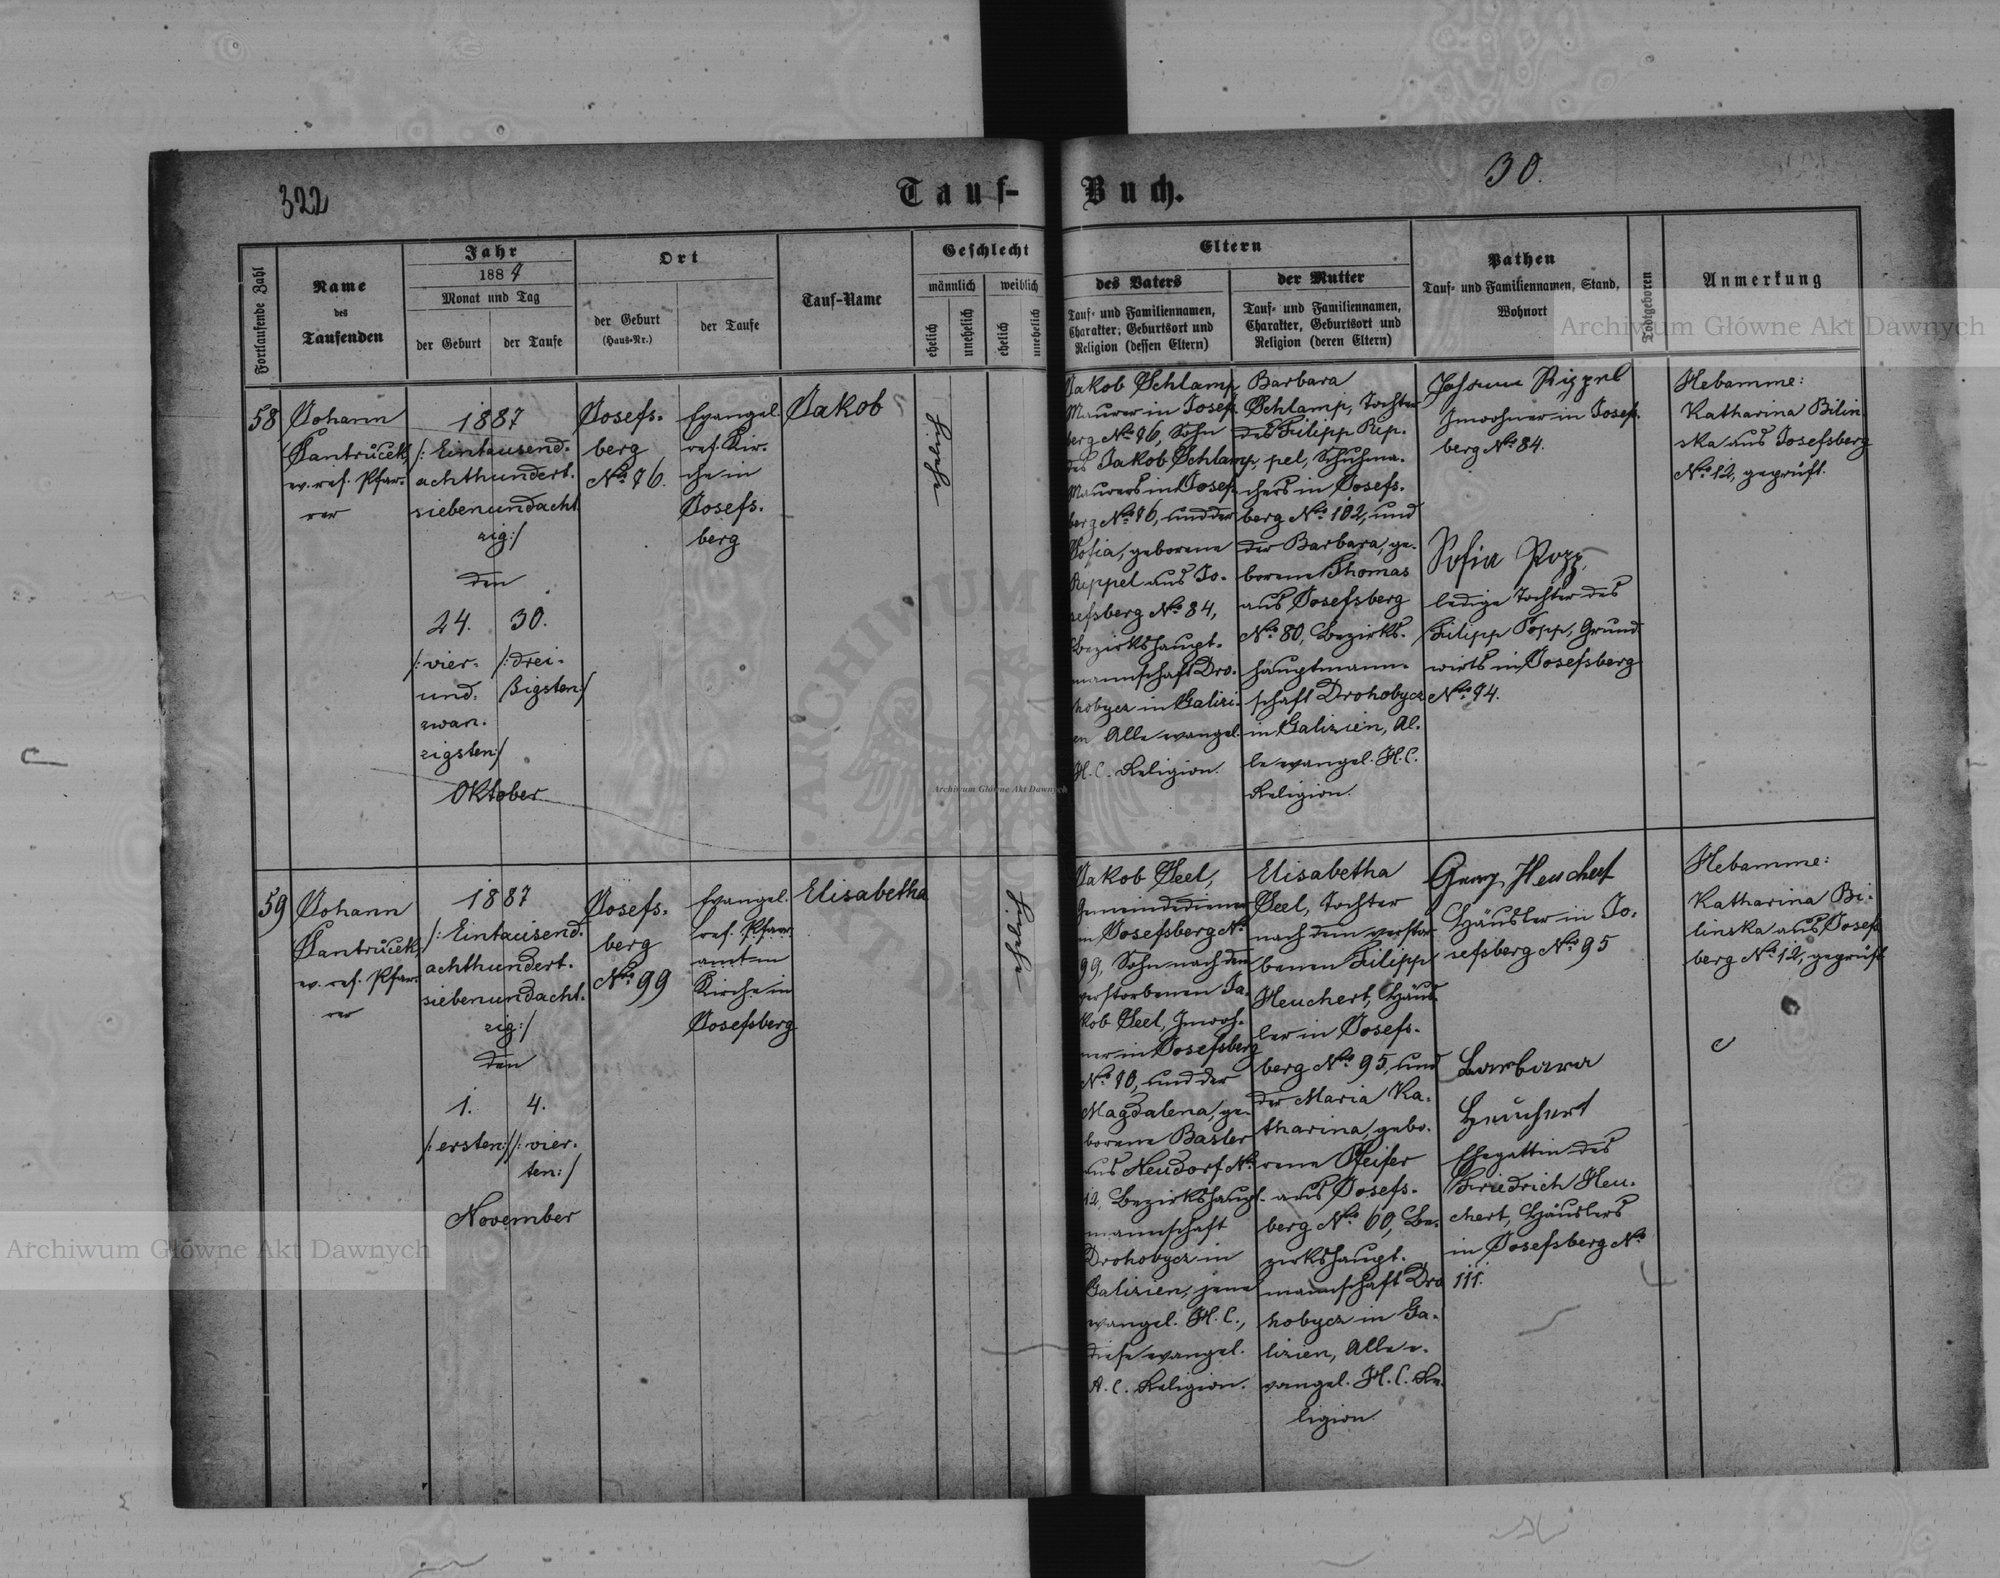 322
30.
Tauf-Buch.
Fortlaufende Zahl
Name
des
Taufenden
Jahr
188
Monat und Tag
der Geburt
der Taufe
Ort
der Geburt
(Haus-Nr.)
der Taufe
Tauf-Name
Geschlecht
männlich
weiblich
ehelich
unehelich
ehelich
unehelich
Eltern
des Vaters
Tauf- und Familiennamen,
Charakter; Geburtsort und
Religion (dessen Eltern)
der Mutter
Tauf- und Familiennamen,
Charakter, Geburtsort und
Religion (deren Eltern)
Pathen
Tauf- und Familiennamen, Stand,
Wohnort
Todtgeboren
Anmerkung
58
Johann
Jantrůcek,
ev. ref. Pfar-
rer
1887
/: Eintausend-
achthundert-
siebenundacht
zig :/
den
24.
/: vier-
und-
zwan-
zigsten :/
30.
/: drei-
ßigsten :/
Oktober
Josefs-
berg
No. 76.
Evangel.
ref. Kir-
che in
Josefs-
berg
Jakob
ehelich
Jakob Schlamp
Maurer in Josef-
berg No. 76, Sohn
des Jakob Schlamp,
Maurers in Josef-
berg No. 76, und der
Sofia, geborene
Rippel aus Jo-
sefsberg No. 84,
Bezirkshaupt-
mannschaft Dro-
hobycz in Galizi-
en. Alle evangel.
H. C. Religion.
Barbara
Schlamp, Tochter
des Filipp Rip-
pel, Schuhma-
chers in Josefs-
berg No. 102, und
der Barbara, ge-
borene Thomas
aus Josefsberg
No. 80, Bezirks-
hauptmann-
schaft Drohobycz
in Galizien, Al-
le evangel. H. C.
Religion.
Johann Rippel
Inwohner in Josef-
berg No. 84.
Sofia Popp,
ledige Tochter des
Filipp Popp, Grund
wirts in Josefsberg
No. 74.
Hebamme:
Katharina Bilin
ska aus Josefsberg
No. 12, geprüft.
59
Johann
Jantrůcek,
ev. ref. Pfar-
rer
1887
/: Eintausend-
achthundert-
siebenundacht-
zig :/
den
1.
/: ersten :/
4.
/: vier-
ten :/
November
Josefs-
berg
No. 99
Evangel.
ref. Pfarr-
amt in
Kirche in
Josefsberg
Elisabetha
ehelich
Jakob Seel,
Gemeindediener
in Josefsberg No.
99, Sohn nach dem
verstorbenen Ja-
kob Seel, Inwoh-
ner in Josefsberg
No. 70, und der
Magdalena, ge-
borene Basler
aus Neudorf No.
12, Bezirkshaupt-
mannschaft
Drohobycz in
Galizien, jene
evangel. H. C.,
diese evangel.
A. C. Religion.
Elisabetha
Seel, Tochter
nach dem verstor
benen Filipp
Heuchert, Häus
ler in Josefs-
berg No. 95, und
der Maria Ka-
tharina, gebo-
rene Pfeifer
aus Josefs-
berg No. 60, Be-
zirkshaupt-
mannschaft Dro
hobycz in Ga-
lizien, Alle e-
vangel. H. C. Re-
ligion.
Georg Heuchert
Häusler in Jo-
sefsberg No. 95
Barbara
Heuchert
Ehegattin des
Friedrich Heu-
chert, Häuslers
in Josefsberg No.
111.
Hebamme:
Katharina Bi-
linska aus Josefs
berg No. 12, geprüft
Archiwum Główne Akt Dawnych
Archiwum Główne Akt Dawnych
Archiwum Główne Akt Dawnych